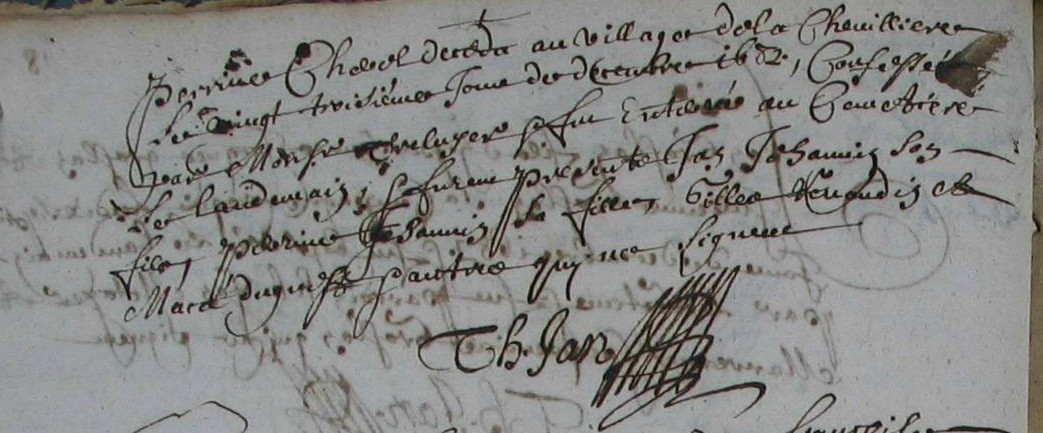 Perrine Chevel deceda au village de la Chevilliere
le vingt troisieme Jour de decembre 1682, Confessée
par Monsr & fut Enterée au Cemetiere
le landemain, & furent presente Jan Jehannin son
filz, perrine Jehannin sa fille, Gilles Renaudin &
Macé & autre quy ne signent
Th. Jan